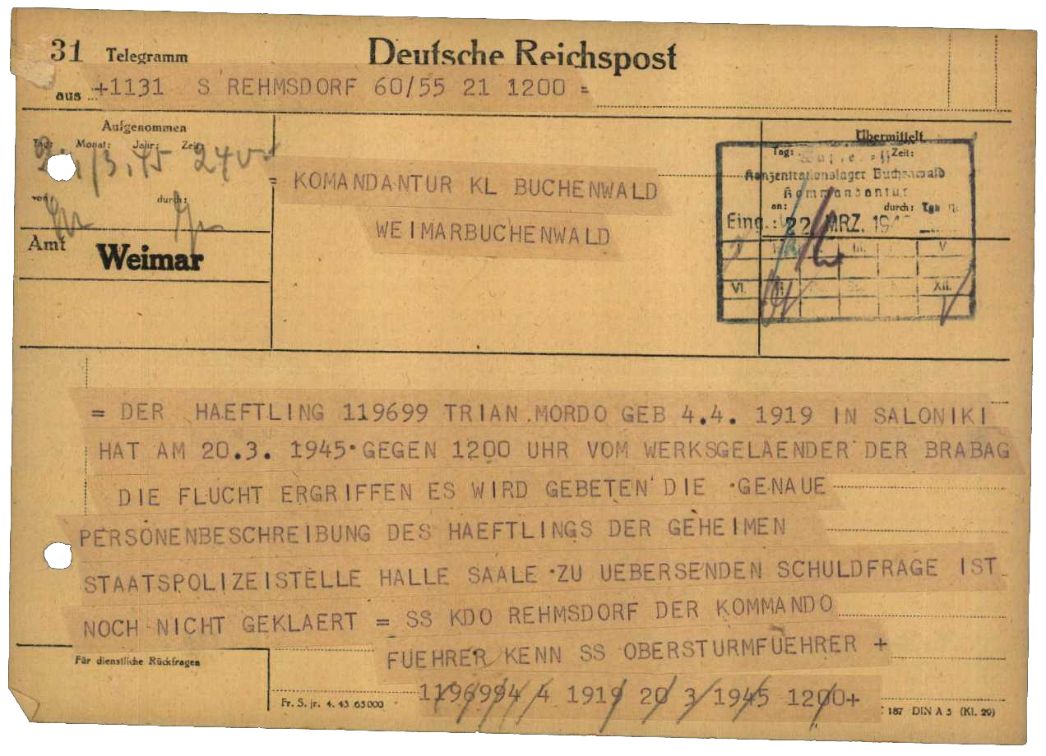 31 Telegramm Deutsche Reichspost
aus +1131 S REHMSDORF 60/55 21 1200 =
Aufgenommen
Tag: Monat: Jahr: Zeit:
von: durch:
Amt Weimar
= KOMANDANTUR KL BUCHENWALD
WEIMARBUCHENWALD
Übermittelt
Tag: Zeit:
Konzentrationslager Buchenwald
Kommandantur
an: durch:
Eing.: 22 MRZ. 194
V
VI. XII.
= DER HAEFTLING 119699 TRIAN MORDO GEB 4.4. 1919 IN SALONIKI
HAT AM 20.3. 1945 GEGEN 1200 UHR VOM WERKSGELAENDER DER BRABAG
DIE FLUCHT ERGRIFFEN ES WIRD GEBETEN DIE GENAUE
PERSONENBESCHREIBUNG DES HAEFTLINGS DER GEHEIMEN
STAATSPOLIZEISTELLE HALLE SAALE ZU UEBERSENDEN SCHULDFRAGE IST
NOCH NICHT GEKLAERT = SS KDO REHMSDORF DER KOMMANDO
FUEHRER KENN SS OBERSTURMFUEHRER +
Für dienstliche Rückfragen
1196994 4 1919 20 3 1945 1200+
Fr. S. jr. 4. 43 65000
187 DIN A 5 (Kl. 29)